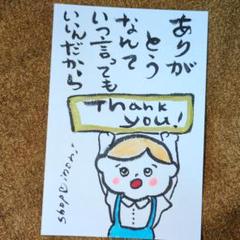 ありが
とう
なんて
いつ言っても
いいんだから
Thank
you!